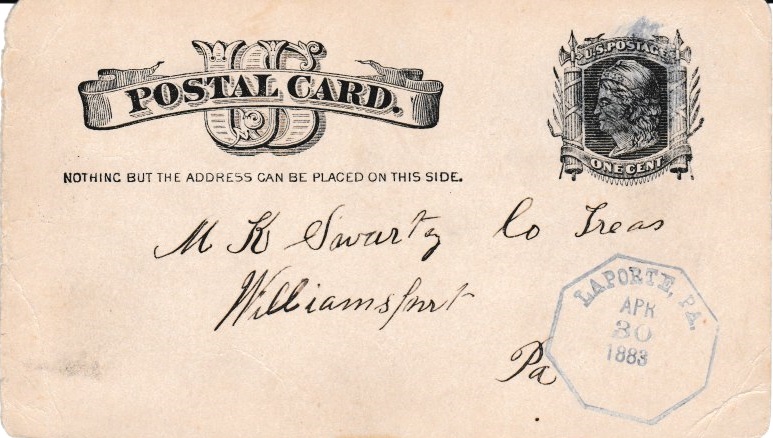 US
POSTAL CARD.
U.S. POSTAGE
ONE CENT
NOTHING BUT THE ADDRESS CAN BE PLACED ON THIS SIDE.
M K Swartz Co Treas
Williamsport
Pa
LAPORTE, PA.
APR
30
1883